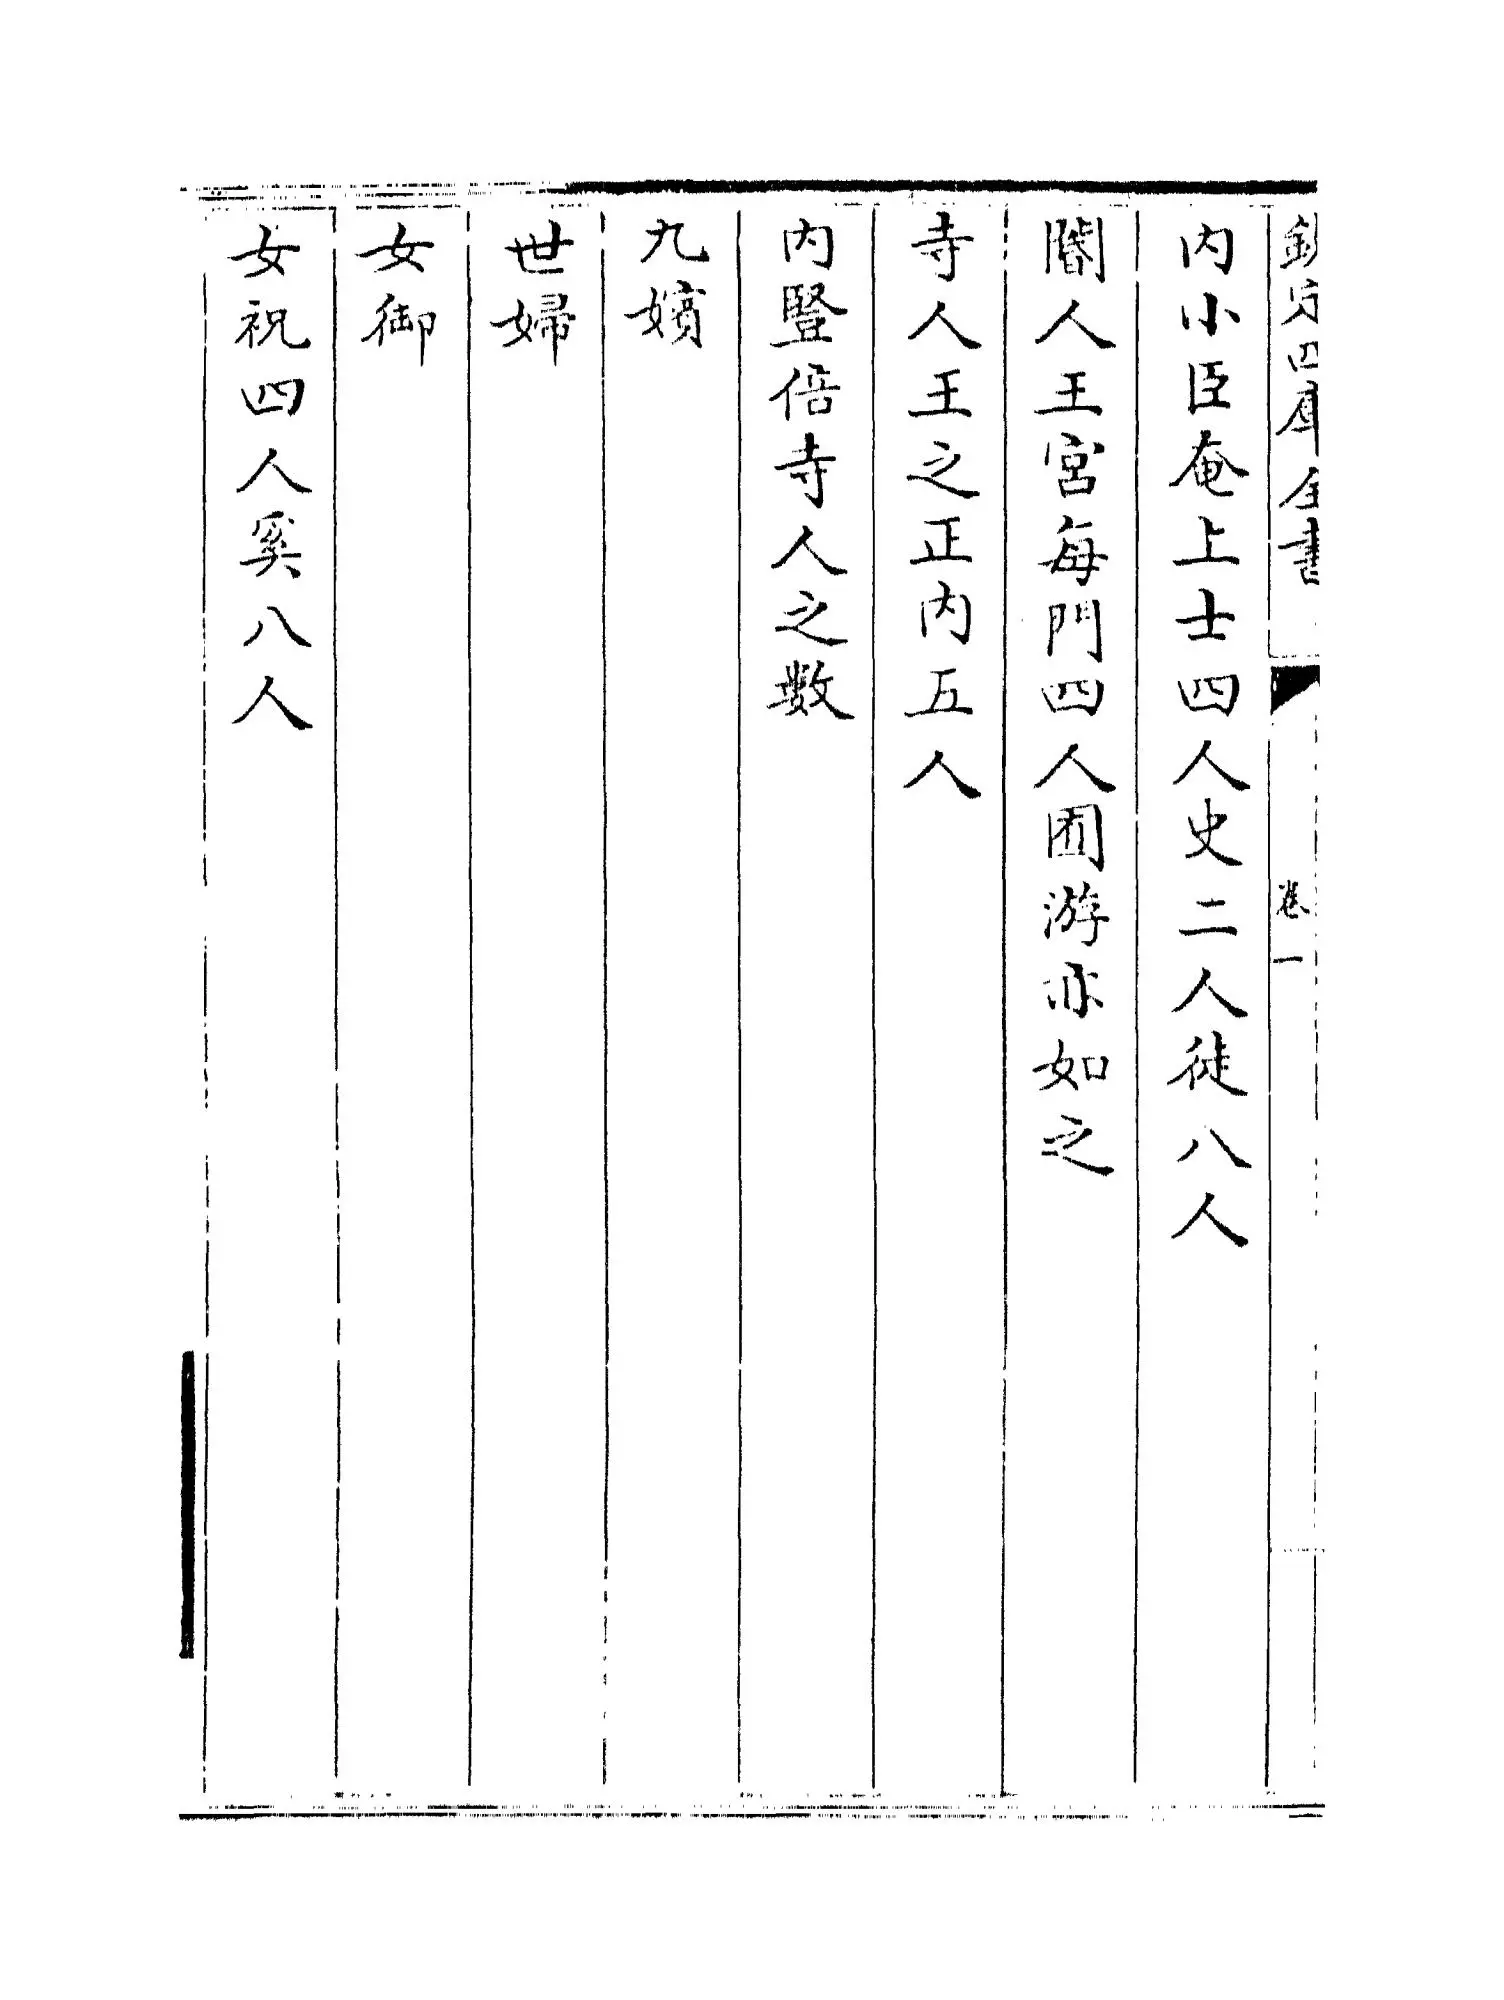 欽定四庫全書
卷一
内小臣奄上士四人史二人徒八人
閽人王宮每門四人囿游亦如之
寺人王之正内五人
内豎倍寺人之數
九嬪
世婦
女御
女祝四人奚八人